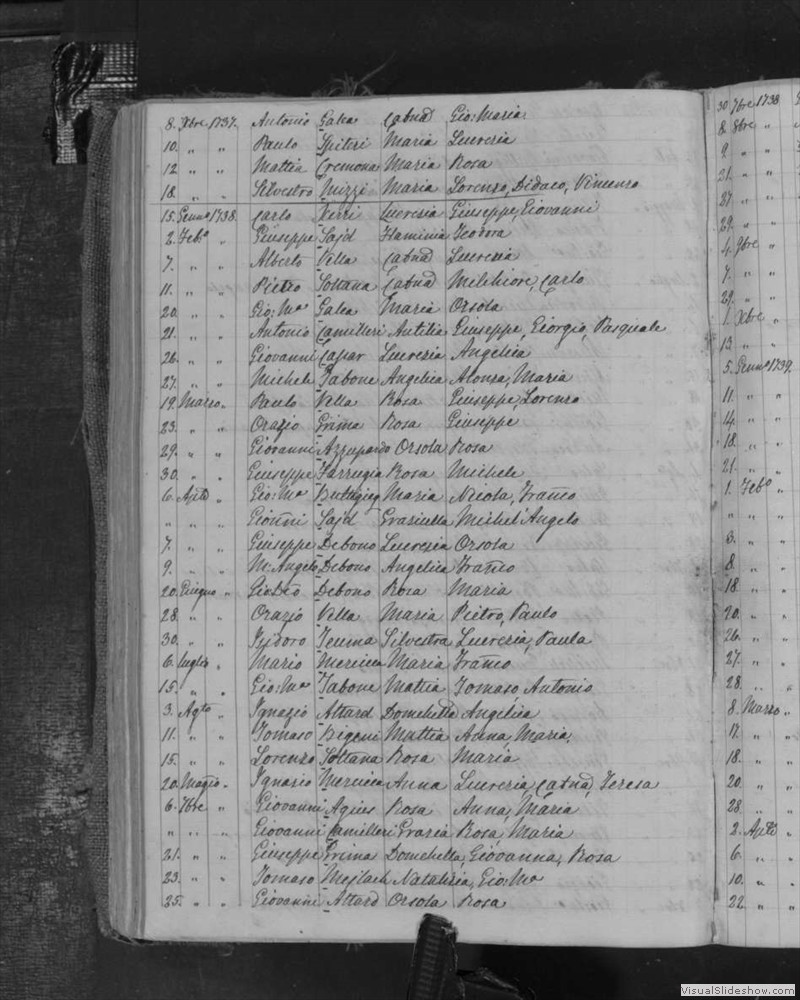 8. Xbre 1737. Antonio Galea Catnã Gio: Maria
10. " " Paulo Spiteri Maria Lucresia
12 " " Mattia Cremona Maria Rosa
18. " " Silvestro Mizzi Maria Lorenzo, Didaco, Vincenzo
15. Genn⁰ 1738. Carlo Xerri Lucresia Giuseppe, Giovanni
2. Feb⁰ " Giuseppe Sajd Flaminia Teodora
7. " " Alberto Vella Catnã Lucresia
11. " " Pietro Soltana Catnã Milchiore, Carlo
20. " " Gio: Mª Galea Maria Orsola
21. " " Antonio Camilleri Autilia Giuseppe, Giorgio, Pasquale
26. " " Giovanni Caspar Lucresia Angelica
27. " " Michele Tabone Angelica Alonza, Maria
19. Marzo " Paulo Vella Rosa Giuseppe, Lorenzo
23. " " Orazio Grima Rosa Giuseppe
29. " " Giovanni Azzupardo Orsola Rosa
30. " " Giuseppe Farrugia Rosa Michele
6. Aple " Gio: Mª Buttigieg Maria Nicola, Franco
" " " Gioñni Sajd Grasiulla Michel'Angelo
7. " " Giuseppe Debono Lucresia Orsola
9. " " M: Angelo Debono Angelica Franco
20. Giugno " Gio Deo Debono Rosa Maria
28. " " Orazio Vella Maria Pietro, Paulo
30. " " Isidoro Teuma Silvestra Lucresia, Paula
6. Luglio " Mario Mercieca Maria Franco
15. " " Gio: Mª Tabone Mattia Tomaso Antonio
3. Agto " Ignazio Attard Domchella Angelica
11. " " Tomaso Bigeni Mattia Anna, Maria,
15. " " Lorenzo Soltana Rosa Maria
20. Maggio " Ignazio Mercieca Anna Lucresia, Catnã, Teresa
6. 7bre " Giovanni Agius Rosa Anna, Maria
" " " Giovanni Camilleri Grazia Rosa, Maria
21. " " Giuseppe Grima Domchella, Giovanna, Rosa
23. " " Tomaso Mejlach Natalizia, Gio: Mª
25. " " Giovanni Attard Orsola Rosa
30 7bre 1738
8. 8bre "
9. " "
21. " "
27. " "
29. " "
4. 9bre "
7. " "
29. " "
1. Xbre "
13 " "
5. Genn⁰ 1739.
11. " "
14. " "
18. " "
21. " "
1. Feb⁰ "
" " "
3. " "
8. " "
18. " "
20. " "
26. " "
27. " "
28. " "
8. Marzo "
17. " "
18. " "
20. " "
28. " "
2. Aple "
6. " "
10. " "
22. " "
VisualSlideshow.com